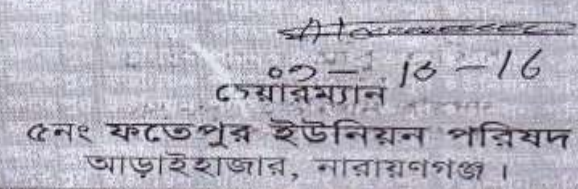 চেয়ারম্যান
৫নং ফতেপুর ইউনিয়ন পরিষদ
আড়াইহাজার, নারায়ণগঞ্জ।